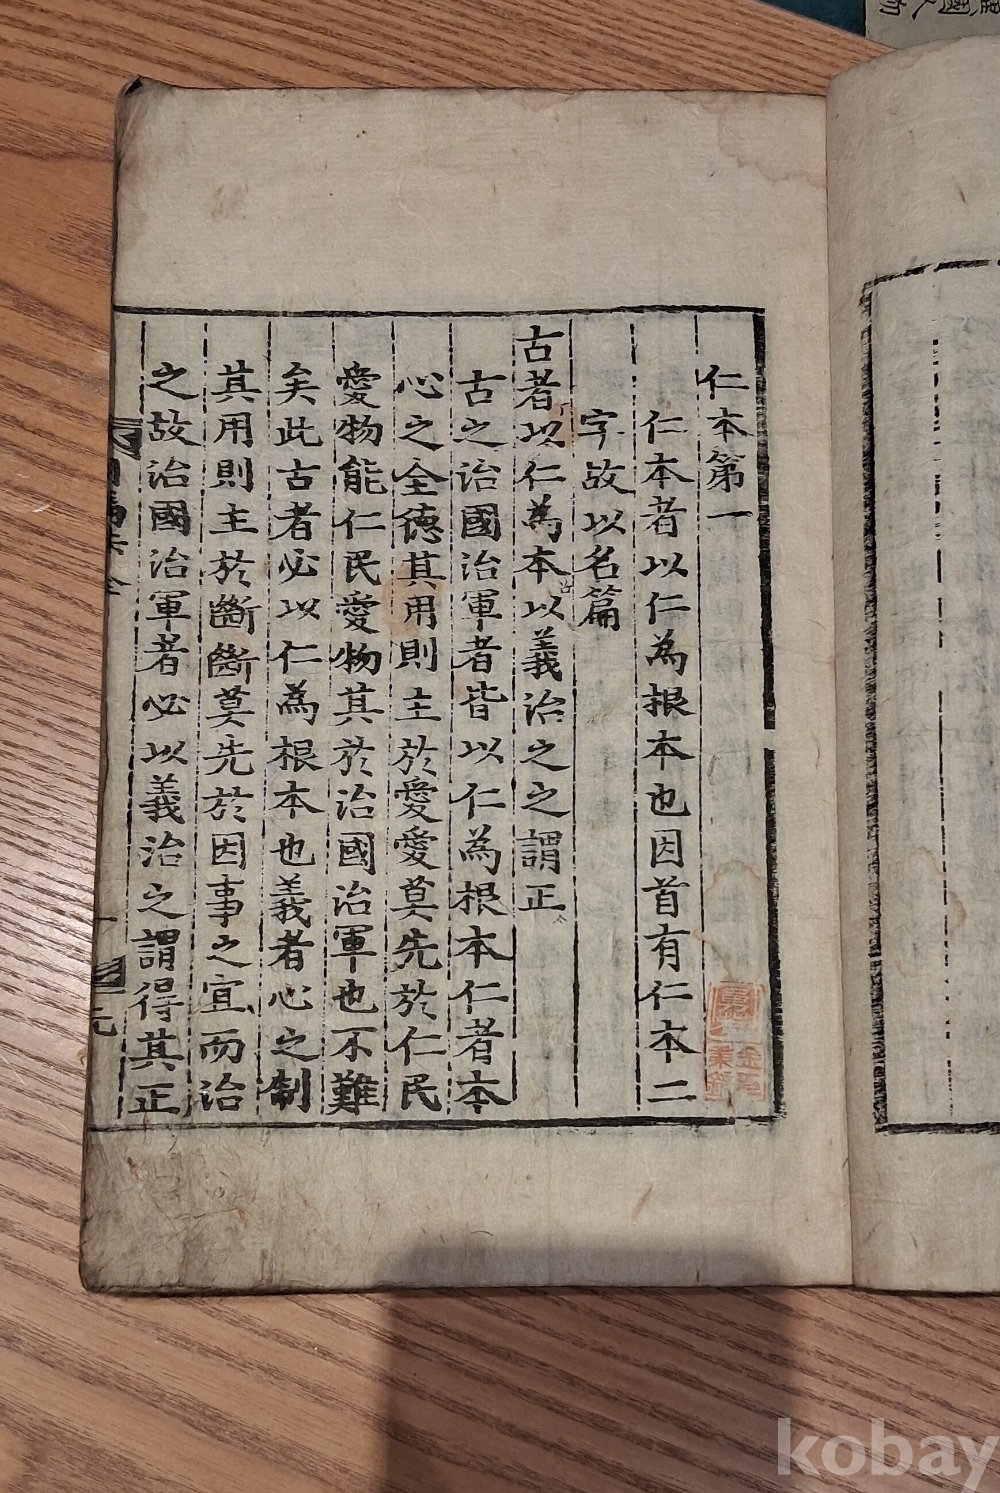 仁本第一
仁本者以仁為根本也因首有仁本二
字故以名篇
古者以仁為本以義治之之謂正
古之治國治軍者皆以仁為根本仁者本
心之全德其用則主於愛愛莫先於仁民
愛物能仁民愛物其於治國治軍也不難
矣此古者必以仁為根本也義者心之制
其用則主於斷斷莫先於因事之宜而治
之故治國治軍者必以義治之謂得其正
kobay